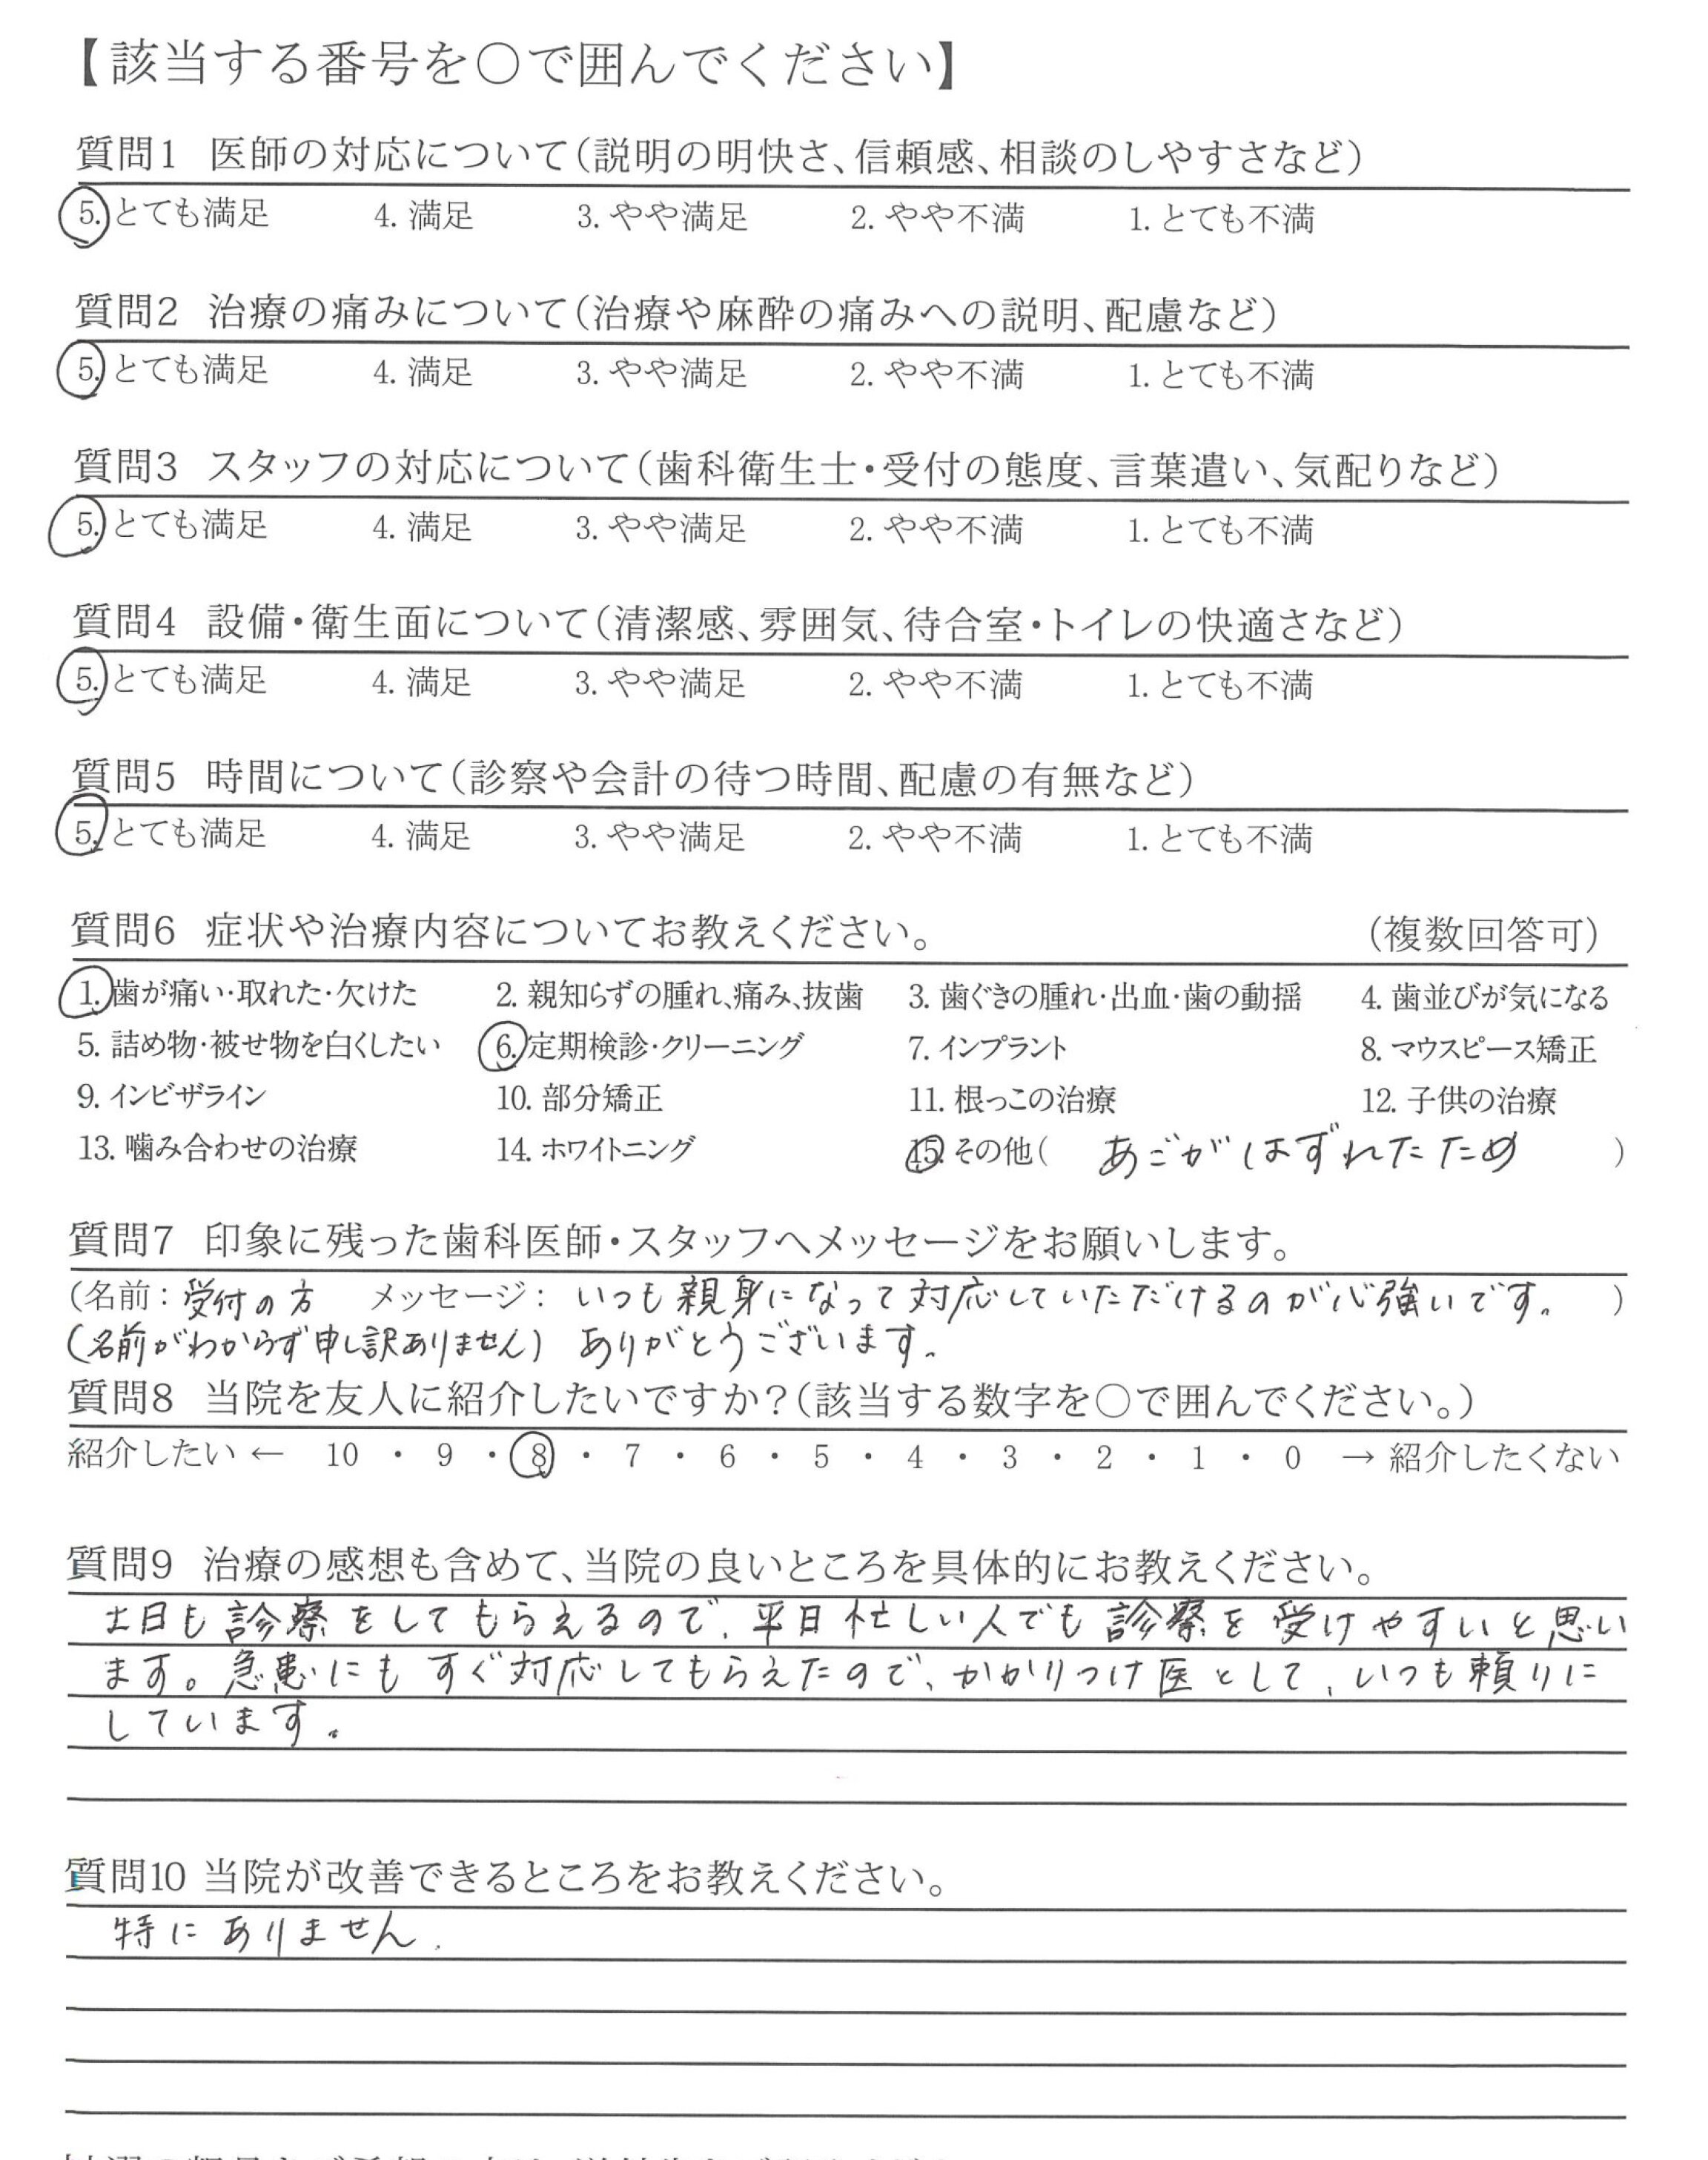 【該当する番号を○で囲んでください】
質問1 医師の対応について(説明の明快さ、信頼感、相談のしやすさなど)
5. とても満足 4. 満足 3. やや満足 2. やや不満 1. とても不満
質問2 治療の痛みについて(治療や麻酔の痛みへの説明、配慮など)
5. とても満足 4. 満足 3. やや満足 2. やや不満 1. とても不満
質問3 スタッフの対応について(歯科衛生士・受付の態度、言葉遣い、気配りなど)
5. とても満足 4. 満足 3. やや満足 2. やや不満 1. とても不満
質問4 設備・衛生面について(清潔感、雰囲気、待合室・トイレの快適さなど)
5. とても満足 4. 満足 3. やや満足 2. やや不満 1. とても不満
質問5 時間について(診察や会計の待つ時間、配慮の有無など)
5. とても満足 4. 満足 3. やや満足 2. やや不満 1. とても不満
質問6 症状や治療内容についてお教えください。 (複数回答可)
1. 歯が痛い・取れた・欠けた 2. 親知らずの腫れ、痛み、抜歯 3. 歯ぐきの腫れ・出血・歯の動揺 4. 歯並びが気になる
5. 詰め物・被せ物を白くしたい 6. 定期検診・クリーニング 7. インプラント 8. マウスピース矯正
9. インビザライン 10. 部分矯正 11. 根っこの治療 12. 子供の治療
13. 噛み合わせの治療 14. ホワイトニング 15. その他( あごがはずれたため )
質問7 印象に残った歯科医師・スタッフへメッセージをお願いします。
(名前: 受付の方 メッセージ: いつも親身になって対応していただけるのが心強いです。 )
(名前がわからず申し訳ありません) ありがとうございます。
質問8 当院を友人に紹介したいですか?(該当する数字を○で囲んでください。)
紹介したい ← 10 ・ 9 ・ 8 ・ 7 ・ 6 ・ 5 ・ 4 ・ 3 ・ 2 ・ 1 ・ 0 → 紹介したくない
質問9 治療の感想も含めて、当院の良いところを具体的にお教えください。
土日も診察をしてもらえるので、平日忙しい人でも診察を受けやすいと思い
ます。急患にもすぐ対応してもらえたので、かかりつけ医として、いつも頼りに
しています。
質問10 当院が改善できるところをお教えください。
特にありません.